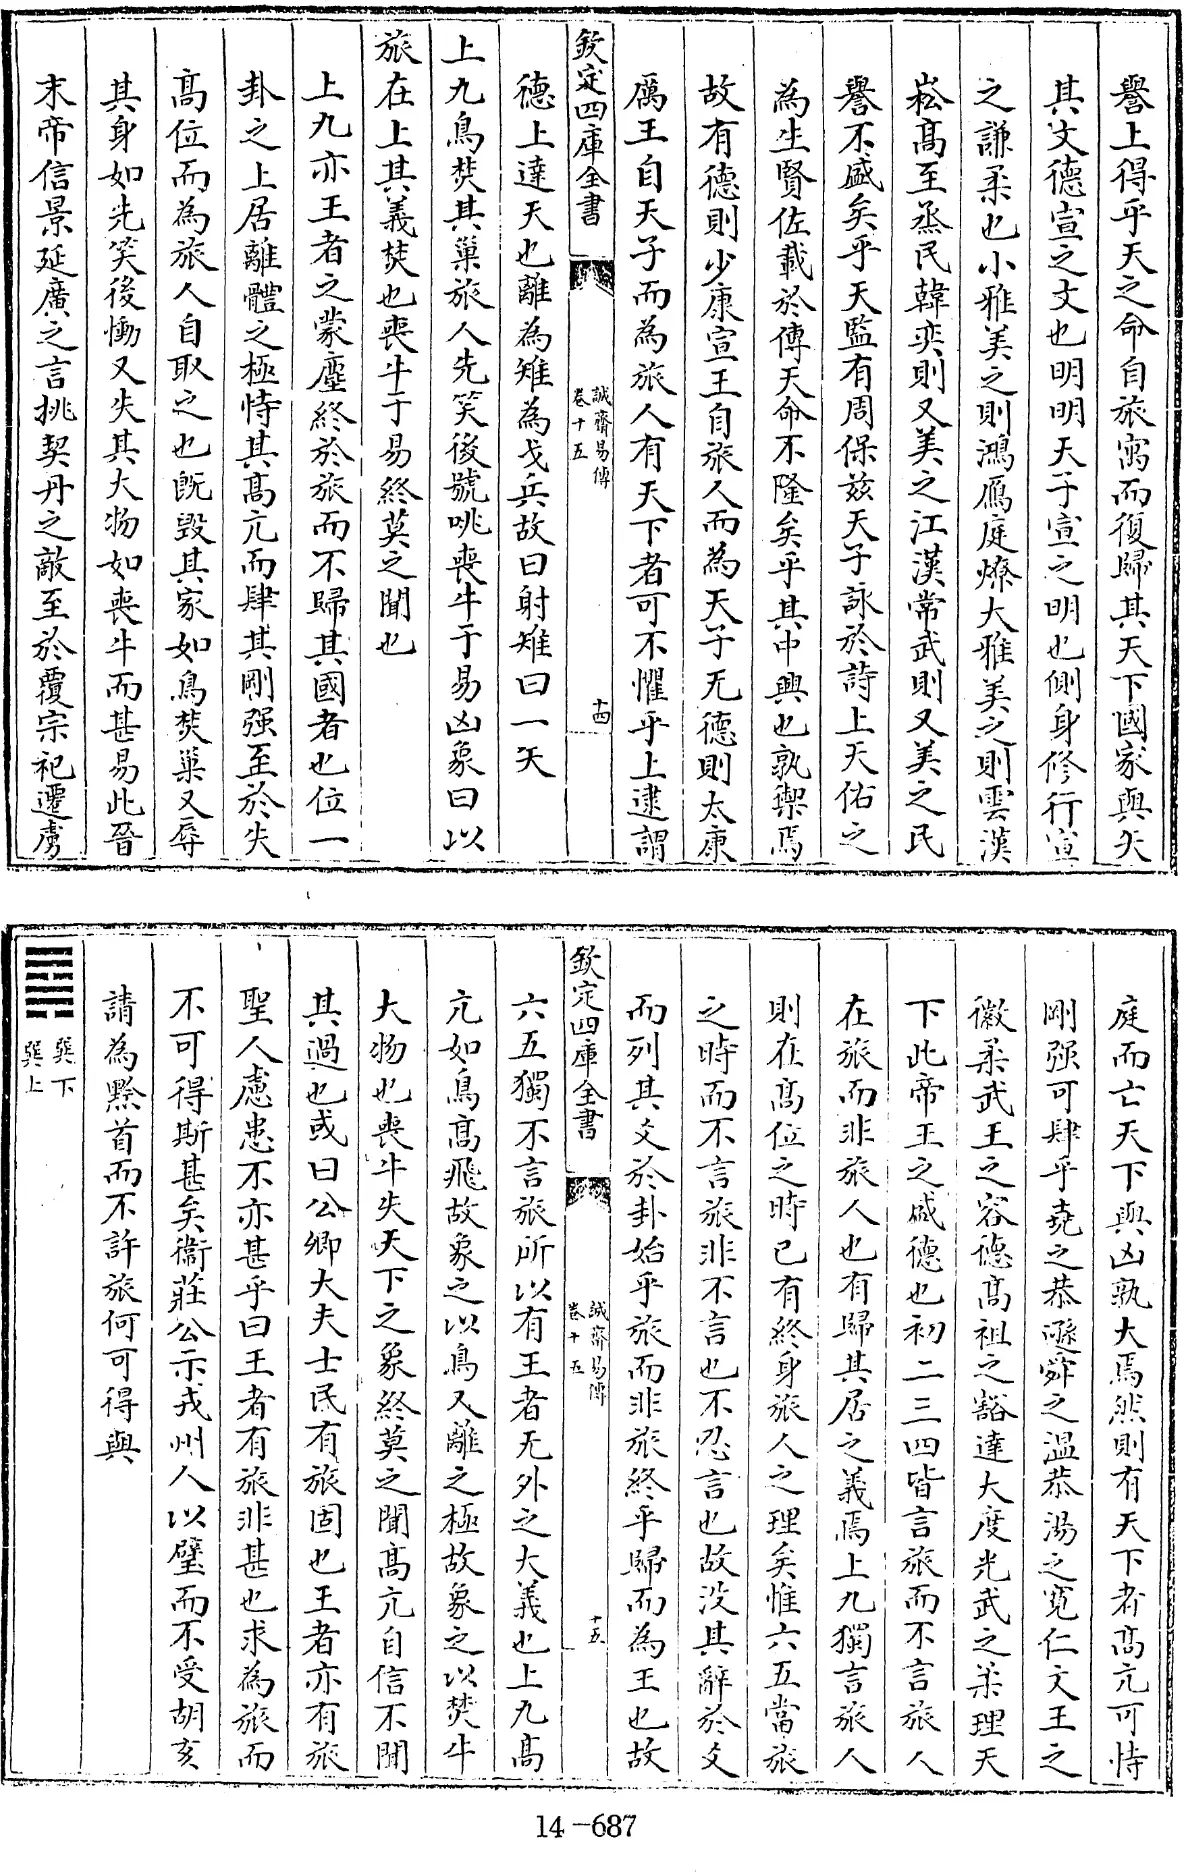 譽上得乎天之命自旅寓而復歸其天下國家與矢
其文德宣之文也明明天子宣之明也側身修行宣
之謙柔也小雅美之則鴻鴈庭燎大雅美之則雲漢
崧髙至烝民韓奕則又美之江漢常武則又美之民
譽不盛矣乎天監有周保兹天子詠於詩上天佑之
為生賢佐載於傳天命不隆矣乎其中興也孰禦焉
故有德則少康宣王自旅人而為天子无德則太康
厲王自天子而為旅人有天下者可不懼乎上逮謂
欽定四庫全書
誠齋易傳
卷十五
十四
德上達天也離為雉為戈兵故曰射雉曰一矢
上九鳥焚其巢旅人先笑後號咷喪牛于易凶象曰以
旅在上其義焚也喪牛于易終莫之聞也
上九亦王者之蒙塵終於旅而不歸其國者也位一
卦之上居離體之極恃其髙亢而肆其剛强至於失
髙位而為旅人自取之也既毀其家如鳥焚巢又辱
其身如先笑後慟又失其大物如喪牛而甚易此晉
末帝信景延廣之言挑契丹之敵至於覆宗祀遷虜
庭而亡天下與凶孰大焉然則有天下者髙亢可恃
剛强可肆乎堯之恭遜舜之温恭湯之寛仁文王之
徽柔武王之容德髙祖之豁達大度光武之柔理天
下此帝王之盛德也初二三四皆言旅而不言旅人
在旅而非旅人也有歸其居之義焉上九獨言旅人
則在髙位之時已有終身旅人之理矣惟六五當旅
之時而不言旅非不言也不忍言也故没其辭於爻
而列其爻於卦始乎旅而非旅終乎歸而為王也故
欽定四庫全書
誠齋易傳
卷十五
十五
六五獨不言旅所以有王者无外之大義也上九髙
亢如鳥髙飛故象之以鳥又離之極故象之以焚牛
大物也喪牛失天下之象終莫之聞髙亢自信不聞
其過也或曰公卿大夫士民有旅固也王者亦有旅
聖人慮患不亦甚乎曰王者有旅非甚也求為旅而
不可得斯甚矣衞莊公示戎州人以璧而不受胡亥
請為黔首而不許旅何可得與
巽下
巽上
14-687